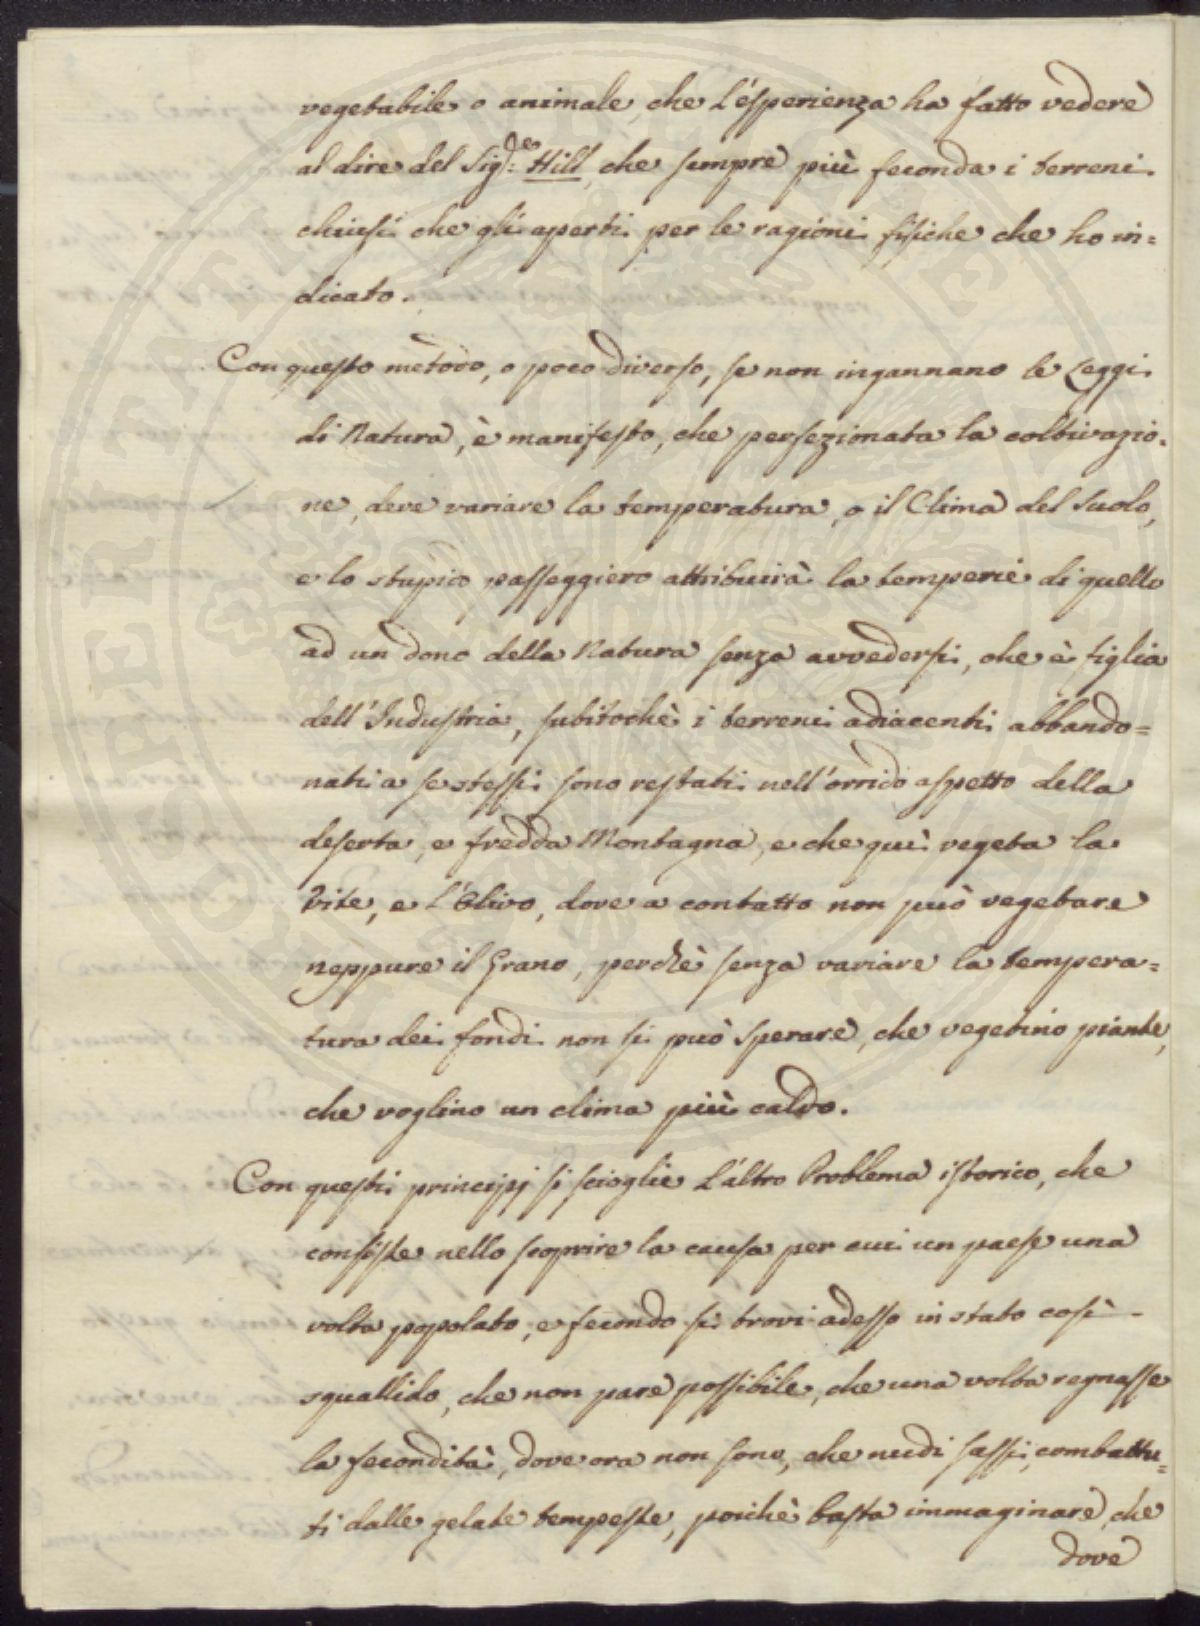 vegetabile o animale, che l'esperienza ha fatto vedere
al dire del Sig.re Hill, che sempre più feconda i terreni
chiusi che gli aperti per le ragioni fisiche che ho in=
dicato.
Con questo metodo, o poco diverso, se non ingannano le Leggi
di Natura, è manifesto, che perfezionata la coltivazio=
ne, deve variare la temperatura, o il Clima del Suolo,
e lo stupido passeggiero attribuirà la temperie di quello
ad un dono della Natura senza avvedersi, che è figlia
dell'Industria, subitochè i terreni adiacenti abbando=
nati a se stessi sono restati nell'orrido aspetto della
deserta, e fredda Montagna, e che quì vegeta la
Vite, e l'Olivo, dove a contatto non può vegetare
neppure il Grano, perchè senza variare la tempera=
tura dei fondi non si può sperare, che vegetino piante,
che voglino un clima più caldo.
Con questi principj si scioglie l'altro Problema istorico, che
consiste nello scoprire la causa per cui un paese una
volta popolato, e fecondo si trovi adesso in stato così
squallido, che non pare possibile, che una volta regnasse
la fecondità, dove ora non sono, che nudi sassi, combattu=
ti dalle gelate tempeste, poichè basta immaginare, che
dove